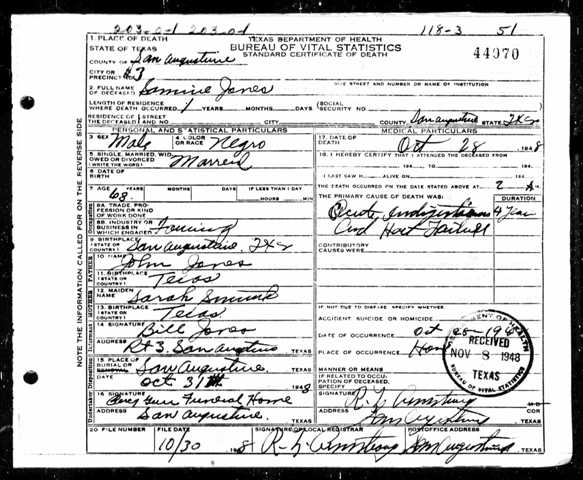 203.0-1 203.01 118-3 51
TEXAS DEPARTMENT OF HEALTH
BUREAU OF VITAL STATISTICS
STANDARD CERTIFICATE OF DEATH
44970
1. PLACE OF DEATH
STATE OF TEXAS
COUNTY OF San Augustine
CITY OR PRECINCT NO. #3
GIVE STREET AND NUMBER OR NAME OF INSTITUTION
2. FULL NAME OF DECEASED Jones
LENGTH OF RESIDENCE WHERE DEATH OCCURRED YEARS MONTHS DAYS
SOCIAL SECURITY NO.
RESIDENCE OF THE DECEASED STREET AND NO. CITY COUNTY San Augustine STATE Tex
PERSONAL AND STATISTICAL PARTICULARS
3. SEX Male
4. COLOR OR RACE Negro
5. SINGLE, MARRIED, WIDOWED OR DIVORCED (WRITE THE WORD) Married
6. DATE OF BIRTH
7. AGE YEARS MONTHS DAYS IF LESS THAN 1 DAY
68 HOURS MIN
8A. TRADE, PROFESSION OR KIND OF WORK DONE
8B. INDUSTRY OR BUSINESS IN WHICH ENGAGED Farming
9. BIRTHPLACE (STATE OR COUNTRY) San Augustine, Tex
10. NAME John Jones
11. BIRTHPLACE (STATE OR COUNTRY) Texas
12. MAIDEN NAME Sarah
13. BIRTHPLACE (STATE OR COUNTRY) Texas
14. SIGNATURE Bill Jones
ADDRESS Rt 3. San Augustine TEXAS
15. PLACE OF BURIAL OR REMOVAL San Augustine TEXAS
DATE Oct 31 1948
16. SIGNATURE Funeral Home
ADDRESS San Augustine. TEXAS
MEDICAL PARTICULARS
17. DATE OF DEATH Oct 28 1948
18. I HEREBY CERTIFY THAT I ATTENDED THE DECEASED FROM
194 TO 194
I LAST SAW H ALIVE ON 194
THE DEATH OCCURRED ON THE DATE STATED ABOVE AT 2 M.
THE PRIMARY CAUSE OF DEATH WAS: DURATION
Acute Indigestion
And Hart Failure
CONTRIBUTORY CAUSES WERE:
IF NOT DUE TO DISEASE, SPECIFY WHETHER:
ACCIDENT, SUICIDE OR HOMICIDE
DATE OF OCCURRENCE Oct 28-194
PLACE OF OCCURRENCE Home
MANNER OR MEANS
IF RELATED TO OCCUPATION OF DECEASED, SPECIFY
SIGNATURE R. L. Armstrong
ADDRESS San Augustine TEXAS
20. FILE NUMBER FILE DATE SIGNATURE OF LOCAL REGISTRAR POSTOFFICE ADDRESS
10/30 1948 R. L. Armstrong San Augustine TEXAS
RECEIVED
NOV 8 1948
TEXAS
BUREAU OF VITAL STATISTICS
NOTE THE INFORMATION CALLED FOR ON THE REVERSE SIDE
Occupation
FATHER
MOTHER
Informant
Disposition
Undertaker